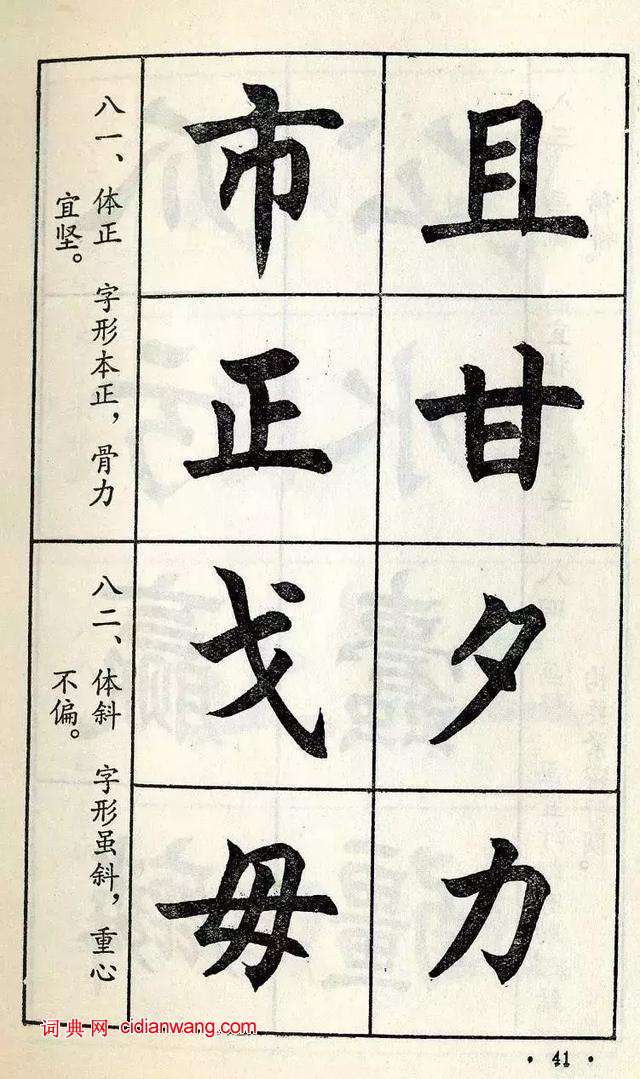 且甘夕力
市正戈毋
八一、体正 字形本正，骨力
宜坚。
八二、体斜 字形虽斜，重心
不偏。
词典网 cidianwang.com
·41·